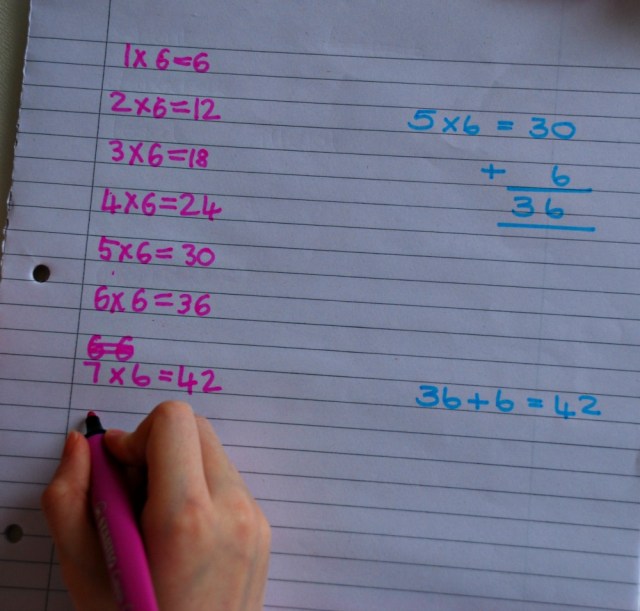 1x6=6
2x6=12
3x6=18
4x6=24
5x6=30
6x6=36
6=6
7x6=42
5x6=30
+ 6
36
36+6=42